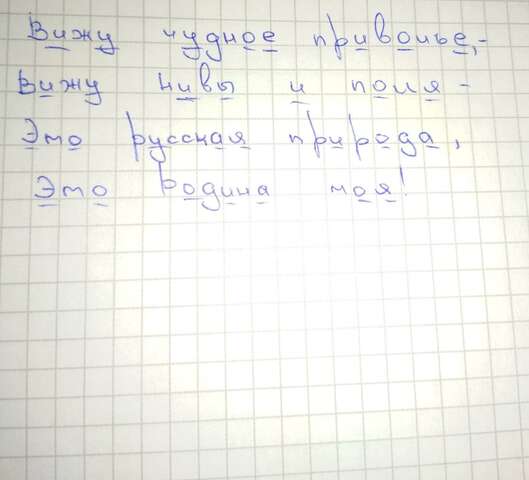 Вижу чудное приволье,-
Вижу нивы и поля-
Это русская природа,
Это родина моя!